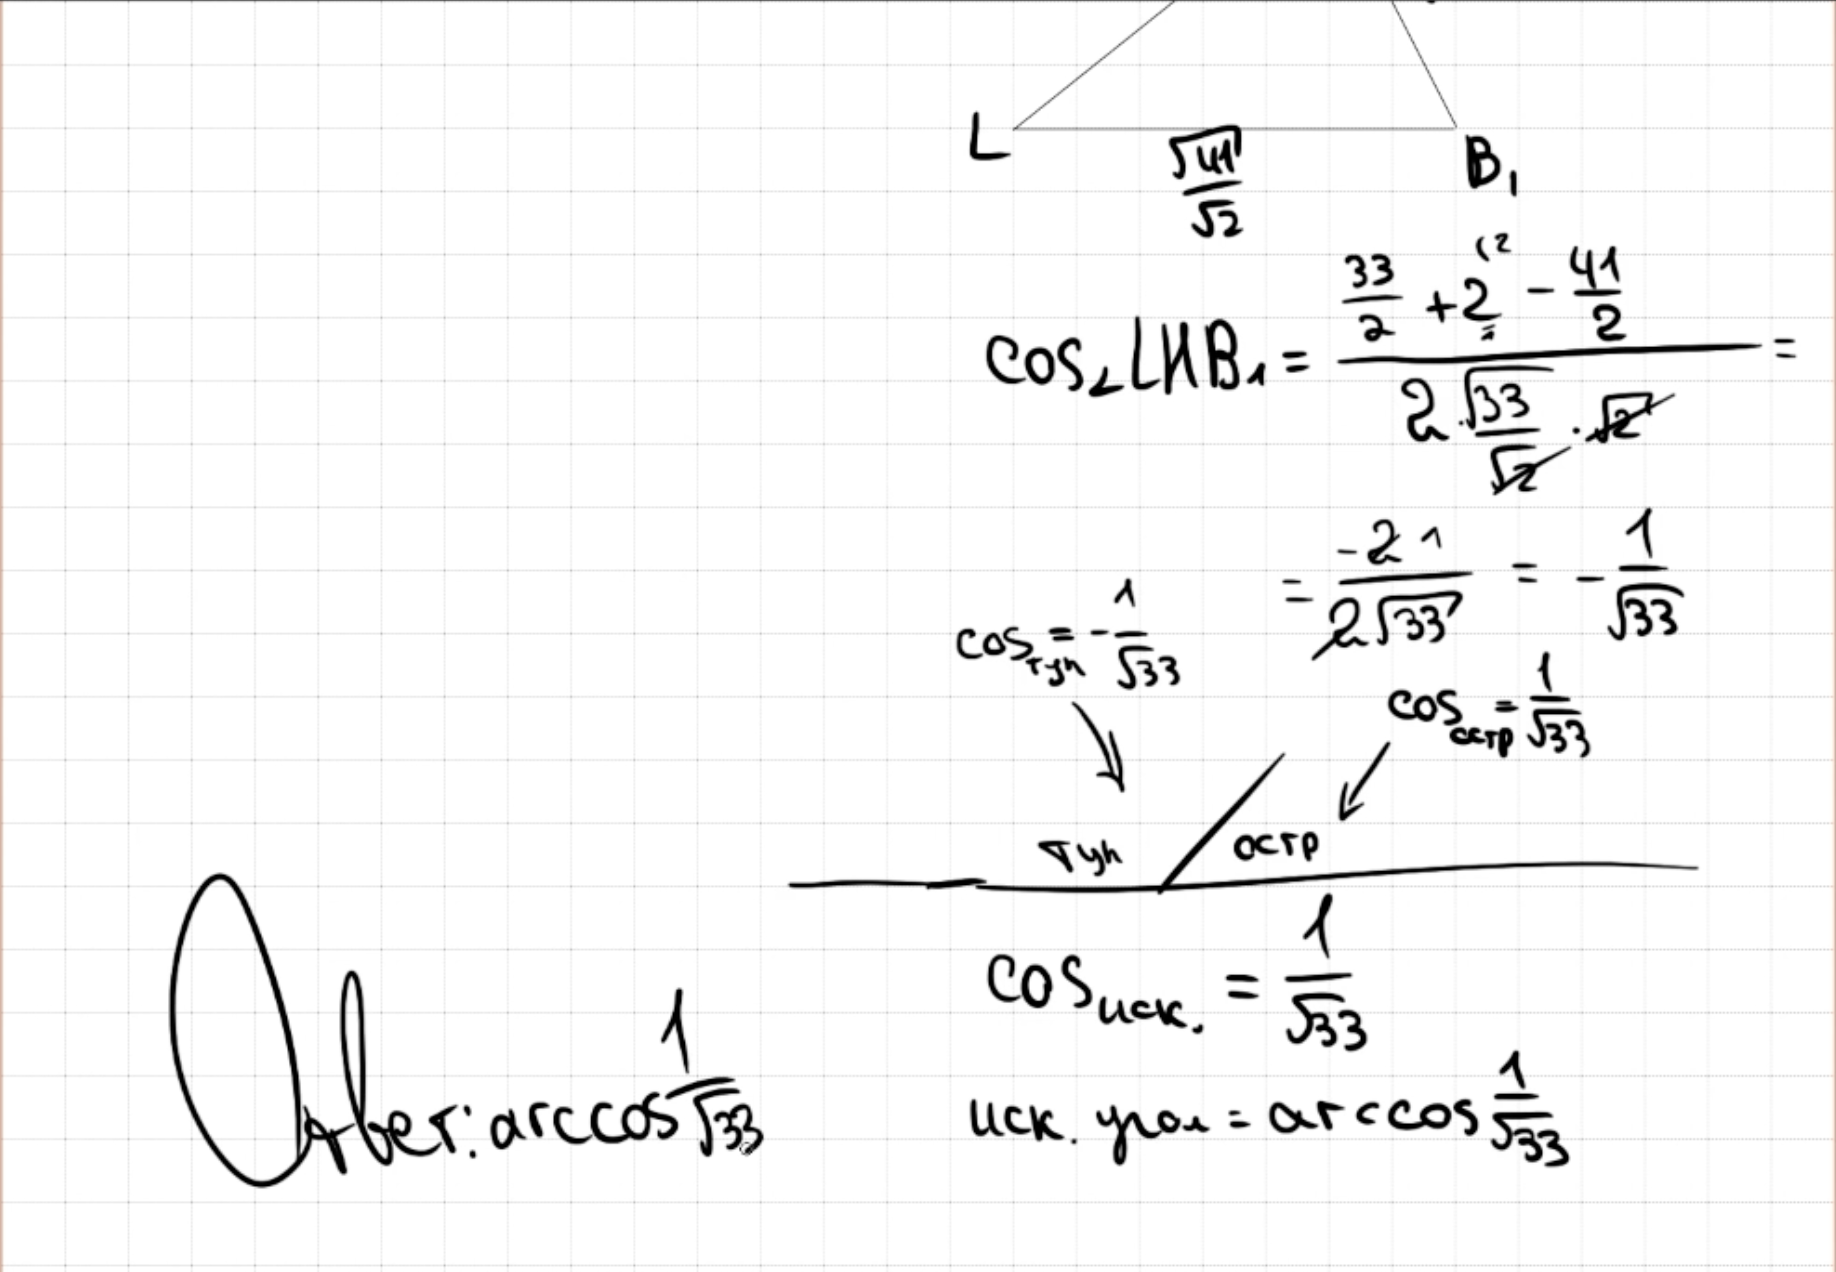 L
B₁
√41/√2
cos∠LHB₁ = (33/2 + 2 - 41/2)/(2·√33/√2 · √2) =
= -2 1/(2√33) = - 1/√33
cos туп = - 1/√33
cos остр = 1/√33
туп
остр
cos иск. = 1/√33
иск. угол = arccos 1/√33
Ответ: arccos 1/√33